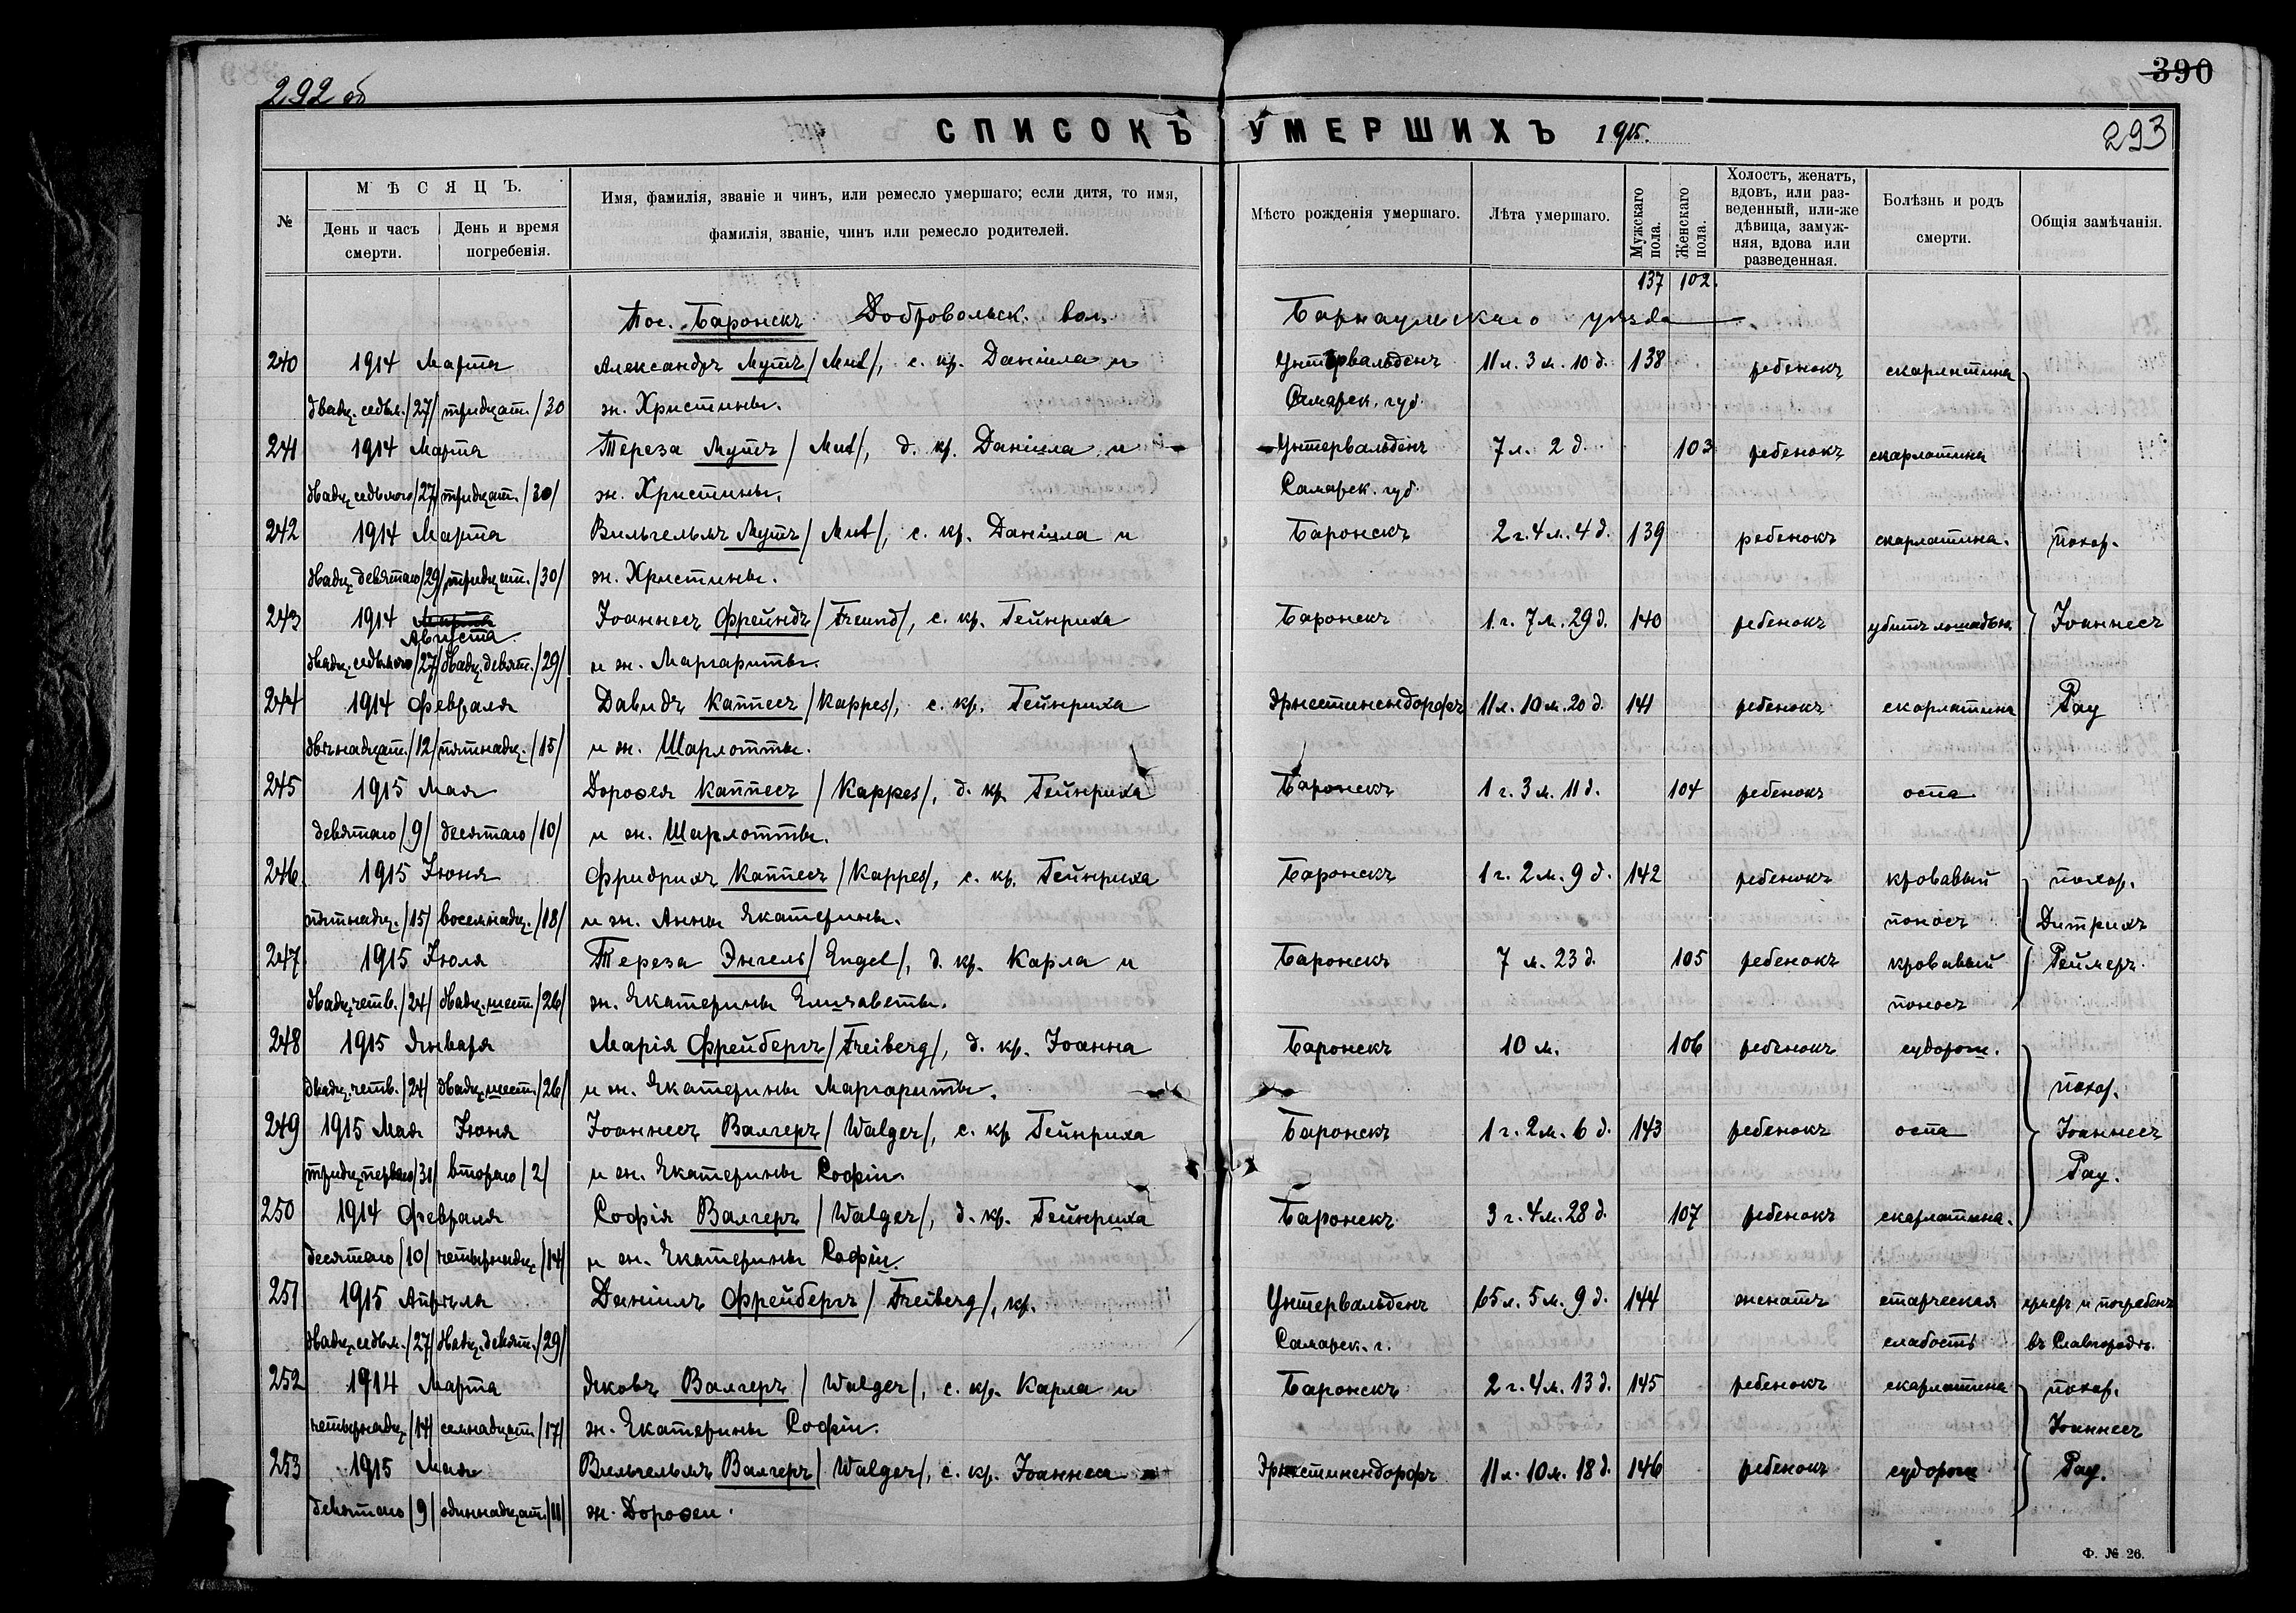 292 об
390
СПИСОКЪ УМЕРШИХЪ 1915.
293
№
МѢСЯЦЪ.
День и часъ смерти.
День и время погребенія.
Имя, фамилія, званіе и чинъ, или ремесло умершаго; если дитя, то имя,
фамилія, званіе, чинъ или ремесло родителей.
Мѣсто рожденія умершаго.
Лѣта умершаго.
Мужскаго пола.
Женскаго пола.
Холостъ, женатъ, вдовъ, или разведенный, или-же дѣвица, замужняя, вдова или разведенная.
Болѣзнь и родъ смерти.
Общія замѣчанія.
137 102.
Пос. Баронскъ Добровольск. вол. Барнаульскаго уѣзда
240 1914 Марта Александръ Мутъ /Mut/, с. кр. Даніила и Унтервальденъ 11 л. 3 м. 10 д. 138 ребенокъ скарлатина
двадц. седьм. /27/ тридцат. /30 ж. Христины. Самарск. губ.
241 1914 Марта Тереза Мутъ /Mut/, д. кр. Даніила и Унтервальденъ 7 л. 2 д. 103 ребенокъ скарлатина
двадц. седьмого /27/ тридцат. /30/ ж. Христины. Самарск. губ.
242 1914 Марта Вильгельмъ Мутъ /Mut/, с. кр. Даніила и Баронскъ 2 г. 4 м. 4 д. 139 ребенокъ скарлатина. похор.
двадц. девятаго /29/ тридцат. /30/ ж. Христины.
243 1914 Марта Іоаннесъ Фрейндъ /Freund/, с. кр. Гейнриха Баронскъ 1 г. 7 м. 29 д. 140 ребенокъ убитъ лошадью Іоаннесъ
Августа
двадц. седьмого /27/ двадц. девят. /29/ и ж. Маргариты.
244 1914 Февраля Давидъ Каппесъ /Kappes/, с. кр. Гейнриха Эрнестинендорфъ 11 л. 10 м. 20 д. 141 ребенокъ скарлатина Рау
двѣнадцат. /12/ пятнадц. /15/ и ж. Шарлотты.
245 1915 Мая Дороѳея Каппесъ /Kappes/, д. кр. Гейнриха Баронскъ 1 г. 3 м. 11 д. 104 ребенокъ оспа
девятаго /9/ десятаго /10/ и ж. Шарлотты.
246. 1915 Іюня Фридрихъ Каппесъ /Kappes/, с. кр. Гейнриха Баронскъ 1 г. 2 м. 9 д. 142 ребенокъ кровавый похор.
пятнадц. /15/ восемнадц. /18/ и ж. Анны Екатерины. поносъ Дитрихъ
247 1915 Іюля Тереза Энгель /Engel/, д. кр. Карла и Баронскъ 7 м. 23 д. 105 ребенокъ кровавый Геймеръ.
двадц. четв. /24/ двадц. шест. /26/ ж. Екатерины Елизаветы. поносъ
248 1915 Января Марія Фрейбергъ /Freiberg/, д. кр. Іоанна Баронскъ 10 м. 106 ребенокъ судорог.
двадц. четв. /24/ двадц. шест. /26/ и ж. Екатерины Маргариты. похор.
249 1915 Мая Іюня Іоаннесъ Валгеръ /Walger/, с. кр. Гейнриха Баронскъ 1 г. 2 м. 6 д. 143 ребенокъ оспа Іоаннесъ
тридц. перваго /31/ второго /2/ и ж. Екатерины Софіи. Рау.
250 1914 Февраля Софія Валгеръ /Walger/, д. кр. Гейнриха Баронскъ 3 г. 4 м. 28 д. 107 ребенокъ скарлатина.
десятаго /10/ четырнадц. /14/ и ж. Екатерины Софіи.
251 1915 Апрѣля Даніилъ Фрейбергъ /Freiberg/, кр. Унтервальденъ 65 л. 5 м. 9 д. 144 женатъ старческая умеръ и погребенъ
двадц. седьм. /27/ двадц. девят. /29/ Самарск. г. слабость въ Славгородѣ.
252 1914 Марта Яковъ Валгеръ /Walger/, с. кр. Карла и Баронскъ 2 г. 4 м. 13 д. 145 ребенокъ скарлатина похор.
четырнадц. /14/ семнадцат. /17/ ж. Екатерины Софіи. Іоаннесъ
253 1915 Мая Вильгельмъ Валгеръ /Walger/, с. кр. Іоаннеса и Эрнестинендорфъ 11 л. 10 м. 18 д. 146 ребенокъ судороги Рау.
девятаго /9/ одиннадцат. /11/ ж. Дороѳеи.
Ф. № 26.